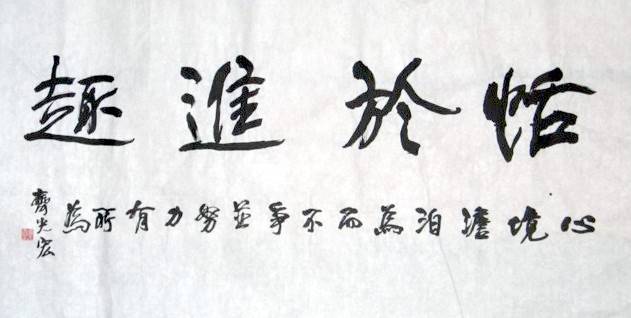 恬於進趣
心境澹泊為而不爭並努力有所為
齊光宏